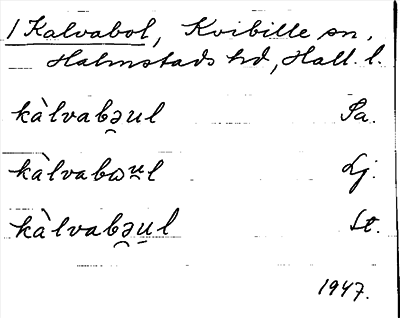 1 Kalvabol, Kvibille sn,
Halmstads hd, Hall. l.
kàlvabə̯ul Sa.
kàlvabωu̲l Lj.
kàlvabə̯u̲l St.
1947.